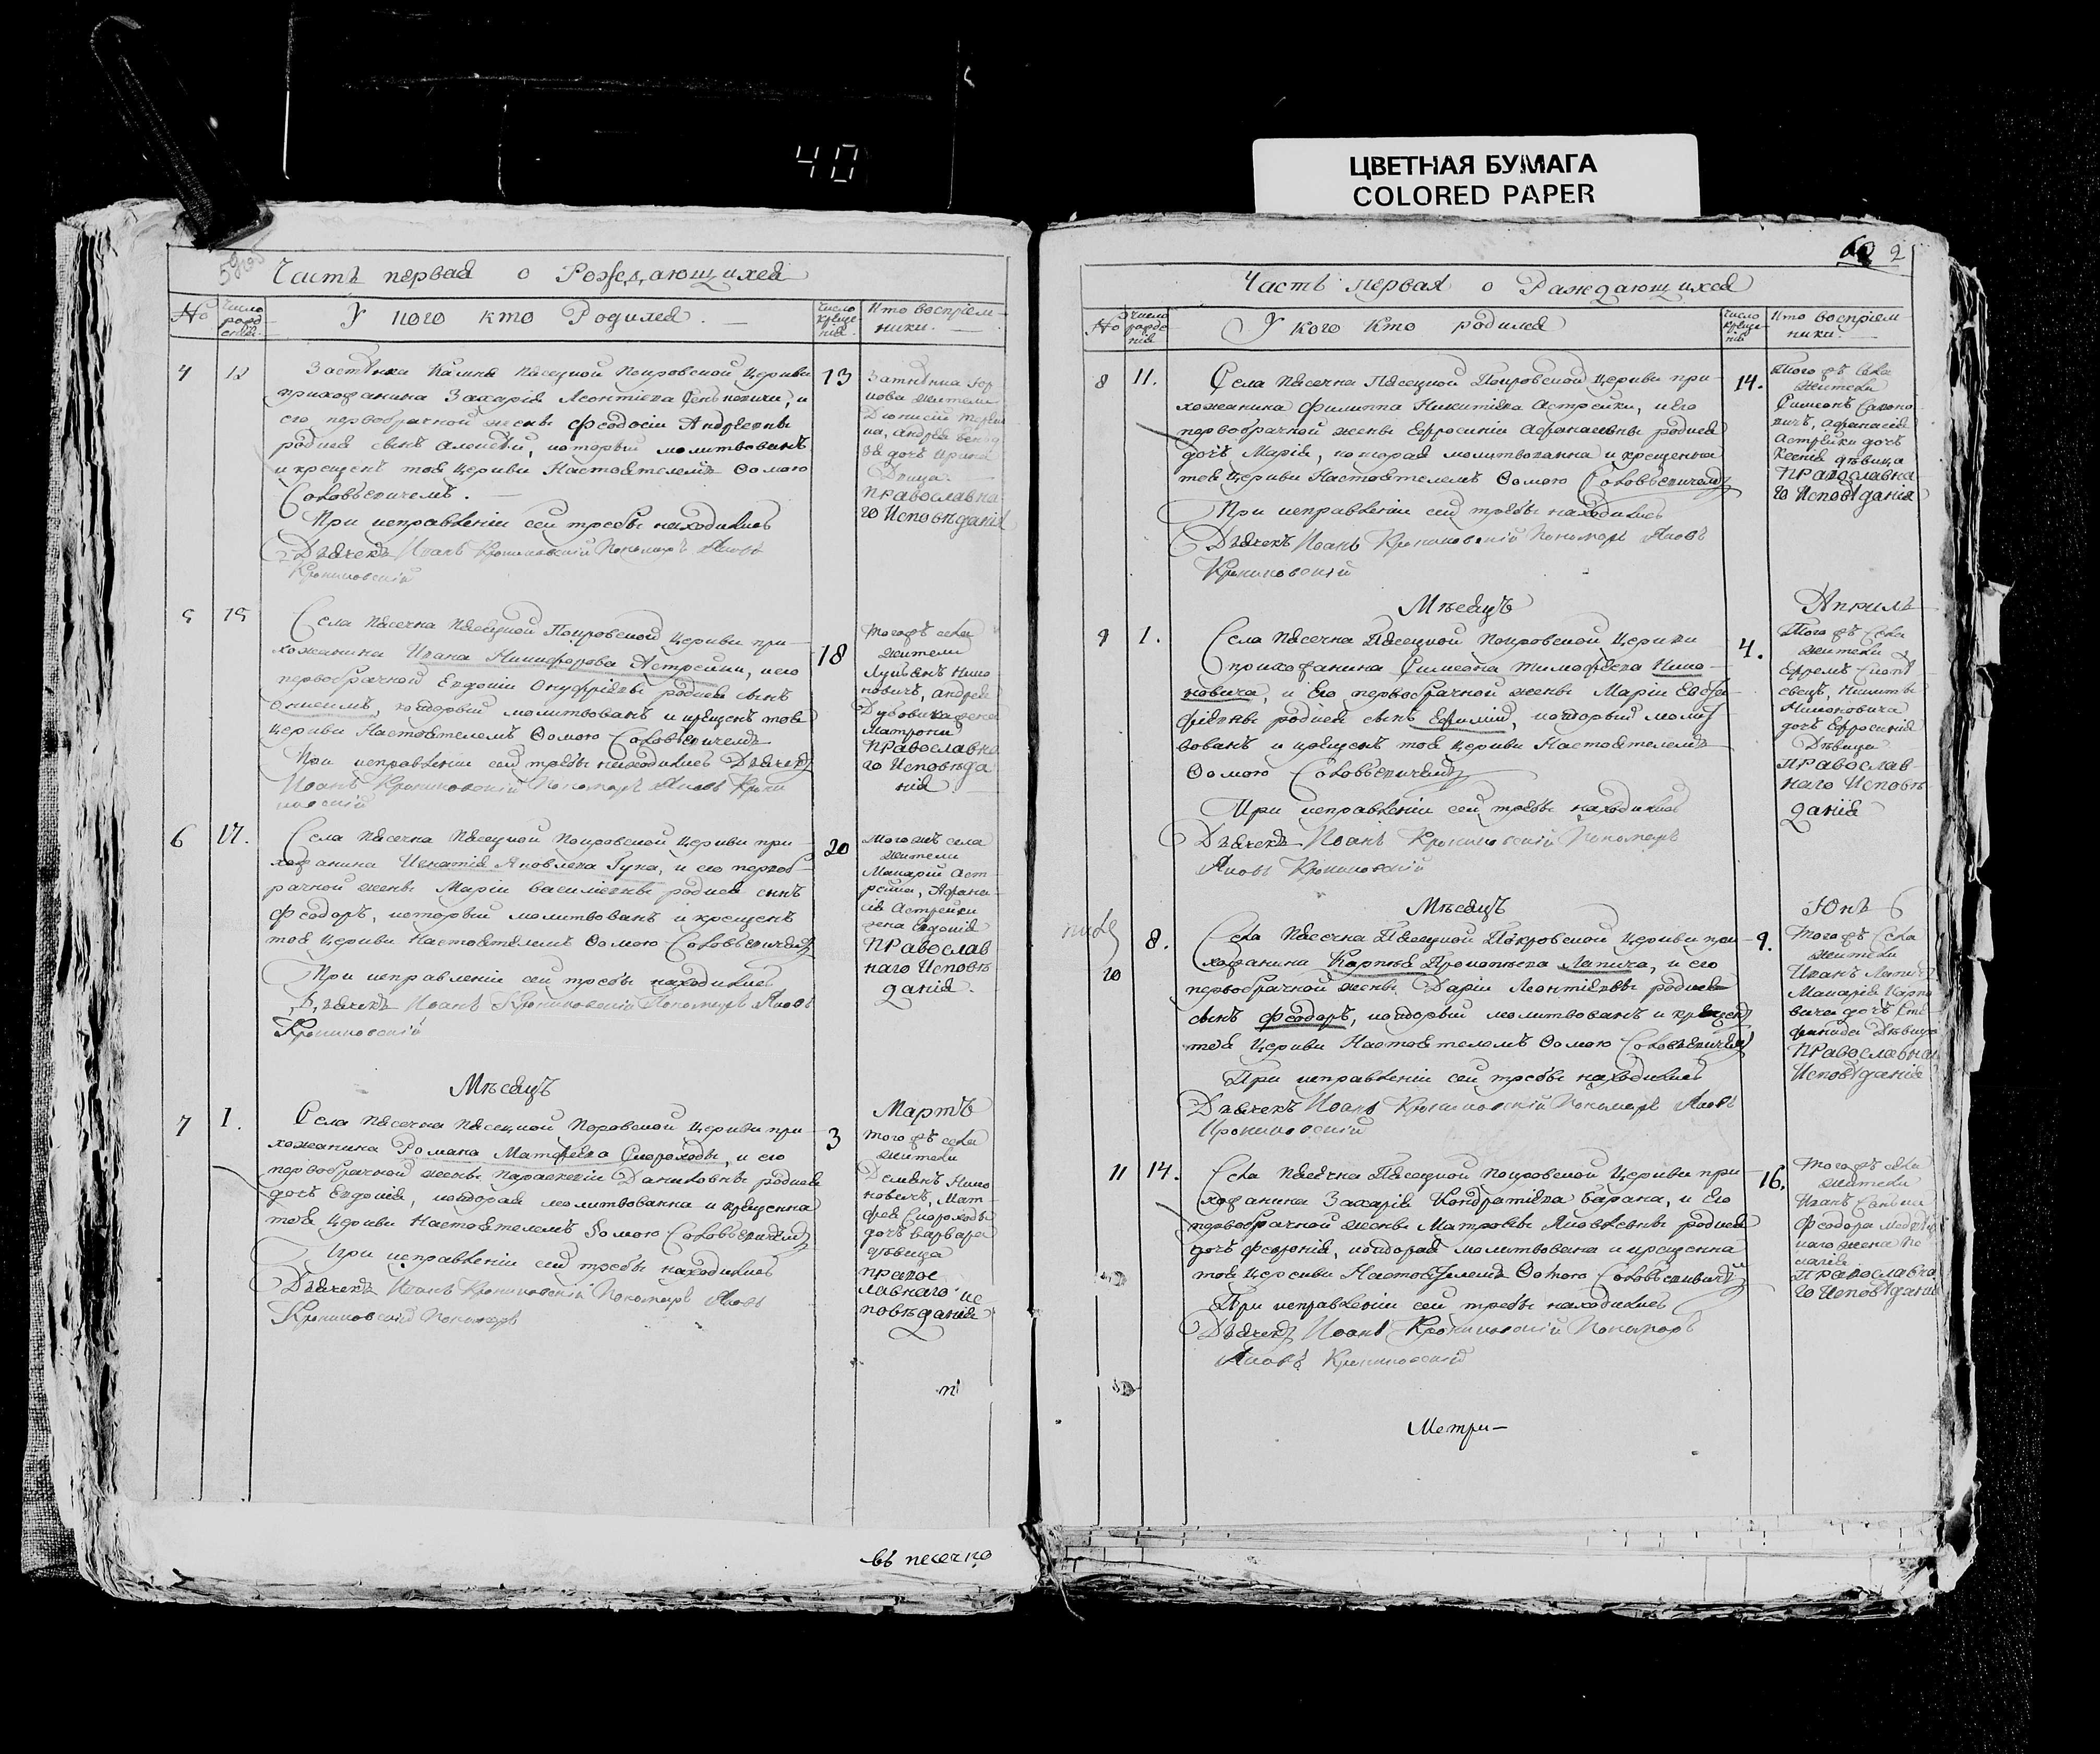 40
ЦВЕТНАЯ БУМАГА
COLORED PAPER
Часть первая о Рождающихся
№
число рожденія
У кого кто Родился
число крещенія
Кто воспріемники.
4
12
13
прихожанина Захарія Леонтіева
его первобрачной жены Феодосіи Андреевны
родися сынъ Алексѣй, который молитвованъ
и крещенъ тоя Церкви Настоятелемъ Ѳомою
Соловьевичемъ.
При исправленіи сей требы находились
Дьячекъ Иоанъ Крониковскій Пономарь Яковъ
Крониковскій
Православна
го Исповѣданія
5
15
18
Села Пасечна Пасецкой Покровской Церкви при
хожанина Ивана Никифорова Астрейки, и его
первобрачной Евдокіи Онуфріевы родися сынъ
Онисимъ, который молитвованъ и крещенъ тоя
Церкви Настоятелемъ Ѳомою Соловьевичемъ
При исправленіи сей требы находились Дьячекъ
Иоанъ Крониковскій Пономарь Яковъ Крони
ковскій
Того жъ села
жители
Лукьянъ Нико
новичъ, Андрея
Дубовика жена
Матрона
Православна
го Исповѣда
нія
6
17.
20
Села Пасечна Пасецкой Покровской Церкви при
хожанина Игнатія Яковлева Гука, и его первоб
рачной жены Маріи Василіевны родися сынъ
Феодоръ, который молитвованъ и крещенъ
тоя Церкви Настоятелемъ Ѳомою Соловьевичемъ
При исправленіи сей требы находились
Дьячекъ Иоанъ Крониковскій Пономарь Яковъ
Крониковскій
того жъ села
жители
Макарій Аст
рейка, Афана
сія Астрейки
жена Евдокія
Православ
наго Исповѣ
данія.
Мѣсяцъ
Мартъ
7
1.
3
Села Пасечна Пасецкой Поровской Церкви при
хожанина Романа Матфеева Скороходы, и его
первобрачной жены Параскевіи Даниловны родися
дочь Евдокія, которая молитвованна и крещенна
тоя Церкви Настоятелемъ Ѳомою Соловьевичемъ
При исправленіи сей требы находились
Дьячекъ Иоанъ Крониковскій Пономарь Яковъ
Крониковскій Пономарь
того жъ села
жители
Демянъ Нико
новичъ, Мат
фея Скороходы
дочь Варвара
дѣвица
правос
лавнаго ис
повѣданія
въ песечно
2
Часть первая о Раждающихся
№
число рожденія
У кого кто родился
число крещенія
Кто воспріем
ники.
8
11.
14.
Села Пасечна Пасецкой Покровской Церкви при
хожанина Филиппа Никитіева Астрейки, и его
первобрачной жены Ефросиніи Афанасьевны родися
дочь Марія, которая молитвованна и крещенна
тоя Церкви Настоятелемъ Ѳомою Соловьевичемъ
При исправленіи сей требы находились
Дьячекъ Иоанъ Крониковскій Пономарь Яковъ
Крониковскій
того жъ села
жители
Симеонъ
Афанасія
Астрейки дочь
Ксенія дѣвица
Православна
го Исповѣданія
Мѣсяцъ
Апрель
9
1.
4.
Села Пасечна Пасецкой Покровской Церкви
прихожанина Симеона Тимофѣева Нико
новича, и Его первобрачной жены Маріи
родися сынъ Ефимій, который молит
вованъ и крещенъ тоя Церкви Настоятелемъ
Ѳомою Соловьевичемъ
При исправленіи сей требы находились
Дьячекъ Иоанъ Крониковскій Пономарь
Яковъ Крониковскій
Того жъ села
жители
Ефремъ
Никиты
Никоновича
дочь Ефросинія
Дѣвица
Православ
наго Исповѣ
данія
Мѣсяцъ
Юнь
10
8.
9.
Села Пасечна Пасецкой Покровской Церкви при
хожанина Карпея Прокопіева Лапича, и его
первобрачной жены Даріи Леонтіевы родися
сынъ Феодоръ, который молитвованъ и крещенъ
тоя Церкви Настоятелемъ Ѳомою Соловьевичемъ
При исправленіи сей требы находились
Дьячекъ Иоанъ Крониковскій Пономарь Яковъ
Крониковскій
Того жъ села
жители
Иванъ Лапичъ
Макарія
дочь Сте
фанида Дѣвица
Православнаго
Исповѣданія
11
14.
16.
Села Пасечна Пасецкой Покровской Церкви при
хожанина Захарія Кондратіева Барана, и Его
первобрачной жены Матроны Яковлевны родися
дочь Февронія, которая молитвована и крещенна
тоя Церкви Настоятелемъ Ѳомою Соловьевичемъ
При исправленіи сей требы находились
Дьячекъ Иоанъ Крониковскій Пономарь
Яковъ Крониковскій
Того жъ села
жители
Иванъ
Феодора
жена Пе
лагія
Православна
го Исповѣданія
Метри-